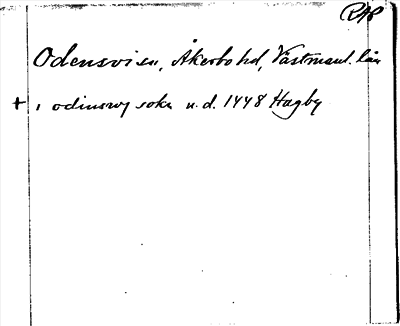 RAP
Odensvi sn, Åkerbo hd, Västmanl. län
+ i odinswj sokn u.d. 1448 Hagby